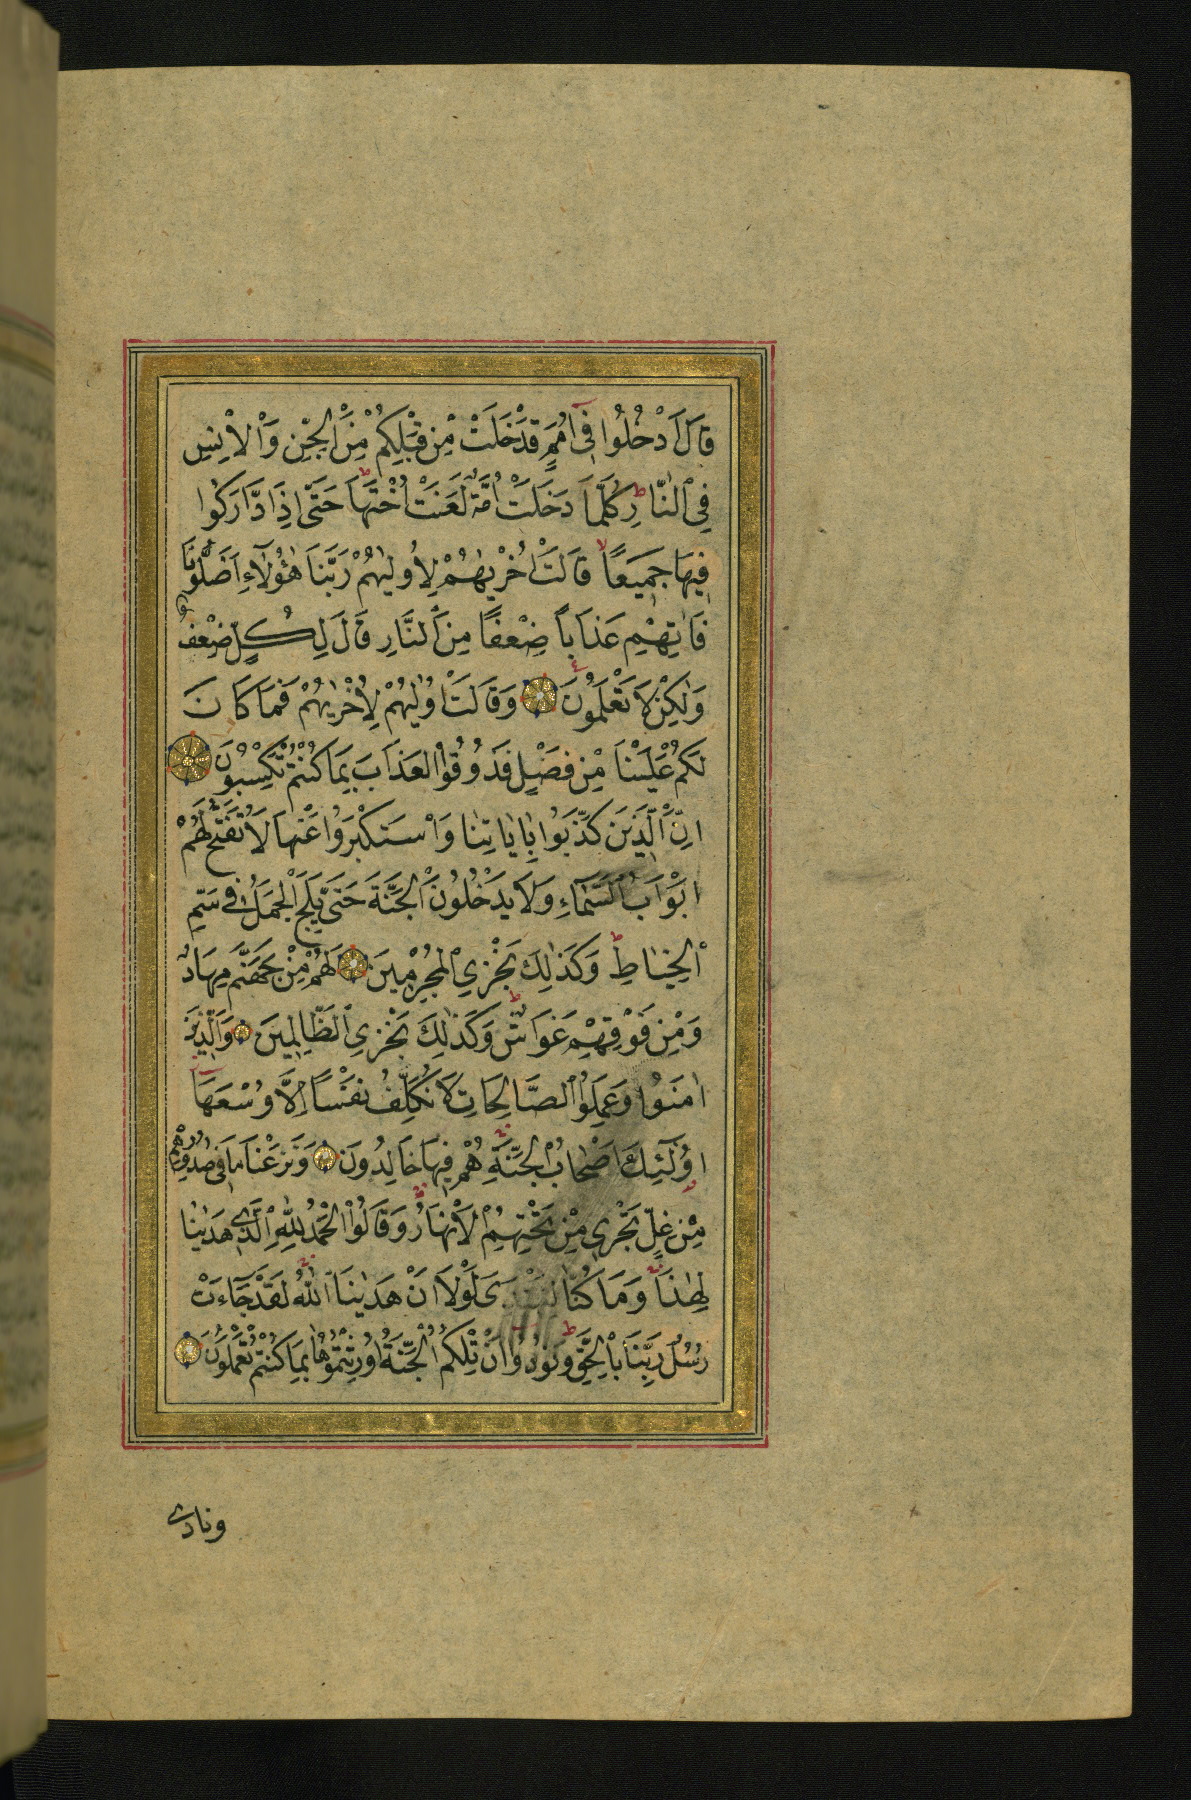 قَالَ ادْخُلُوا فِي أُمَمٍ قَدْ خَلَتْ مِنْ قَبْلِكُمْ مِنَ الْجِنِّ وَالْاِنْسِ
فِي النَّارِ كُلَّمَا دَخَلَتْ اُمَّةٌ لَعَنَتْ اُخْتَهَا حَتّٰى اِذَا ادَّارَكُوا
فِيهَا جَمِيعًا قَالَتْ اُخْرٰيهُمْ لِاُولٰيهُمْ رَبَّنَا هٰؤُلَاءِ اَضَلُّونَا
فَاٰتِهِمْ عَذَابًا ضِعْفًا مِنَ النَّارِ قَالَ لِكُلٍّ ضِعْفٌ
وَلٰكِنْ لَا تَعْلَمُونَ وَقَالَتْ اُولٰيهُمْ لِاُخْرٰيهُمْ فَمَا كَانَ
لَكُمْ عَلَيْنَا مِنْ فَضْلٍ فَذُوقُوا الْعَذَابَ بِمَا كُنْتُمْ تَكْسِبُونَ
اِنَّ الَّذِينَ كَذَّبُوا بِاٰيَاتِنَا وَاسْتَكْبَرُوا عَنْهَا لَا تُفَتَّحُ لَهُمْ
اَبْوَابُ السَّمَاءِ وَلَا يَدْخُلُونَ الْجَنَّةَ حَتّٰى يَلِجَ الْجَمَلُ فِي سَمِّ
الْخِيَاطِ وَكَذٰلِكَ نَجْزِي الْمُجْرِمِينَ لَهُمْ مِنْ جَهَنَّمَ مِهَادٌ
وَمِنْ فَوْقِهِمْ غَوَاشٍ وَكَذٰلِكَ نَجْزِي الظَّالِمِينَ وَالَّذِينَ
اٰمَنُوا وَعَمِلُوا الصَّالِحَاتِ لَا نُكَلِّفُ نَفْسًا اِلَّا وُسْعَهَا
اُولٰئِكَ اَصْحَابُ الْجَنَّةِ هُمْ فِيهَا خَالِدُونَ وَنَزَعْنَا مَا فِي صُدُورِهِمْ
مِنْ غِلٍّ تَجْرِي مِنْ تَحْتِهِمُ الْاَنْهَارُ وَقَالُوا الْحَمْدُ لِلّٰهِ الَّذِي هَدٰينَا
لِهٰذَا وَمَا كُنَّا لِنَهْتَدِيَ لَوْلَا اَنْ هَدٰينَا اللّٰهُ لَقَدْ جَاءَتْ
رُسُلُ رَبِّنَا بِالْحَقِّ وَنُودُوا اَنْ تِلْكُمُ الْجَنَّةُ اُورِثْتُمُوهَا بِمَا كُنْتُمْ تَعْمَلُونَ
ونادى